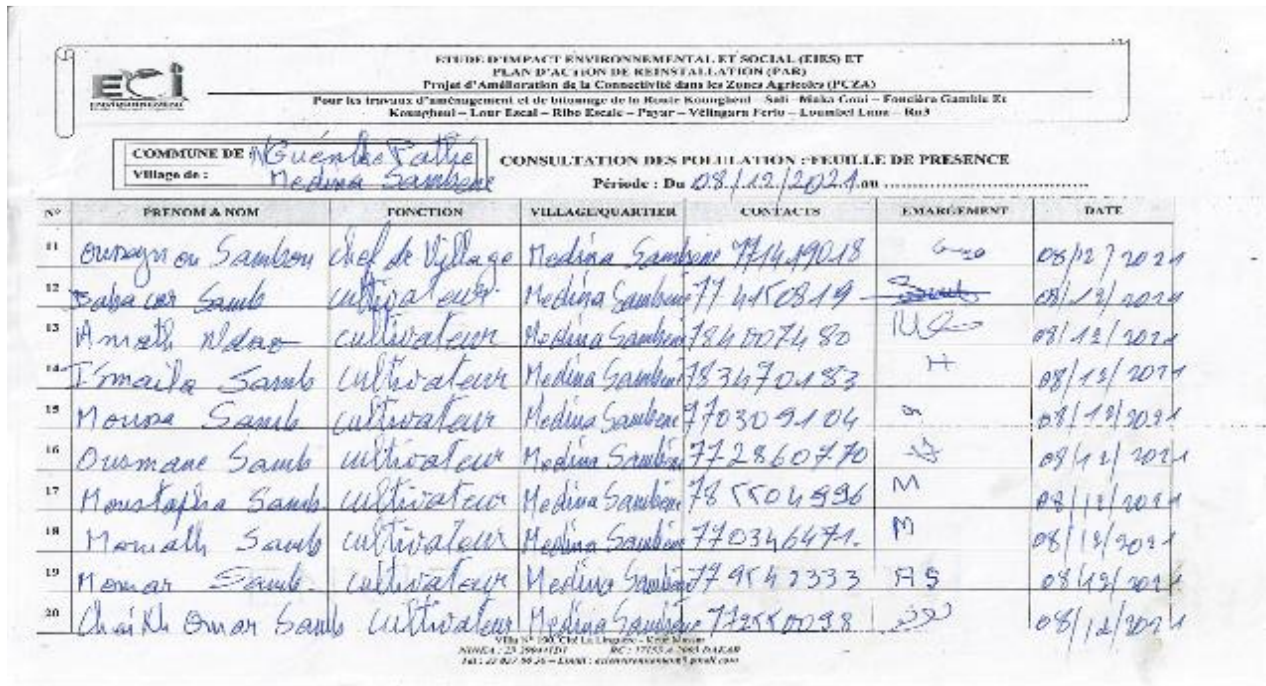 ETUDE D'IMPACT ENVIRONNEMENTAL ET SOCIAL (EIES) ET
PLAN D'ACTION DE REINSTALLATION (PAR)
Projet d'Amélioration de la Connectivité dans les Zones Agricoles (PCZA)
Pour les travaux d'aménagement et de bitumage de la Route Koungheul – Sali – Maka Goui – Foncière Gambie Et
Koungheul – Lour Escal – Ribo Escale – Payar – Vélingara Ferlo – Loumbel Lana – Rn3
ECI
ENVIRONNEMENT
COMMUNE DE : NGuénthe Pathé
Village de : Medina Sambene
CONSULTATION DES POLULATION : FEUILLE DE PRESENCE
Période : Du 08/12/2021 au
N° PRENOM & NOM FONCTION VILLAGE/QUARTIER CONTACTS EMARGEMENT DATE
11 Ousaynou Sambou chef de Village Medina Sambene 771419018 08/12/2021
12 Babacar Samb cultivateur Medina Sambene 77 4150819 Samb 08/12/2021
13 Amath Ndao cultivateur Medina Sambene 784007480 08/12/2021
14 Ismaila Samb cultivateur Medina Sambene 783470483 H 08/12/2021
15 Moussa Samb cultivateur Medina Sambene 770309104 08/12/2021
16 Ousmane Samb cultivateur Medina Sambene 772860770 08/12/2021
17 Moustapha Samb cultivateur Medina Sambene 785504996 M 08/12/2021
18 Momath Samb cultivateur Medina Sambene 770346471. M 08/12/2021
19 Momar Samb cultivateur Medina Sambene 779542333 AS 08/12/2021
20 Cheikh Omar Samb cultivateur Medina Sambene 772550098 08/12/2021